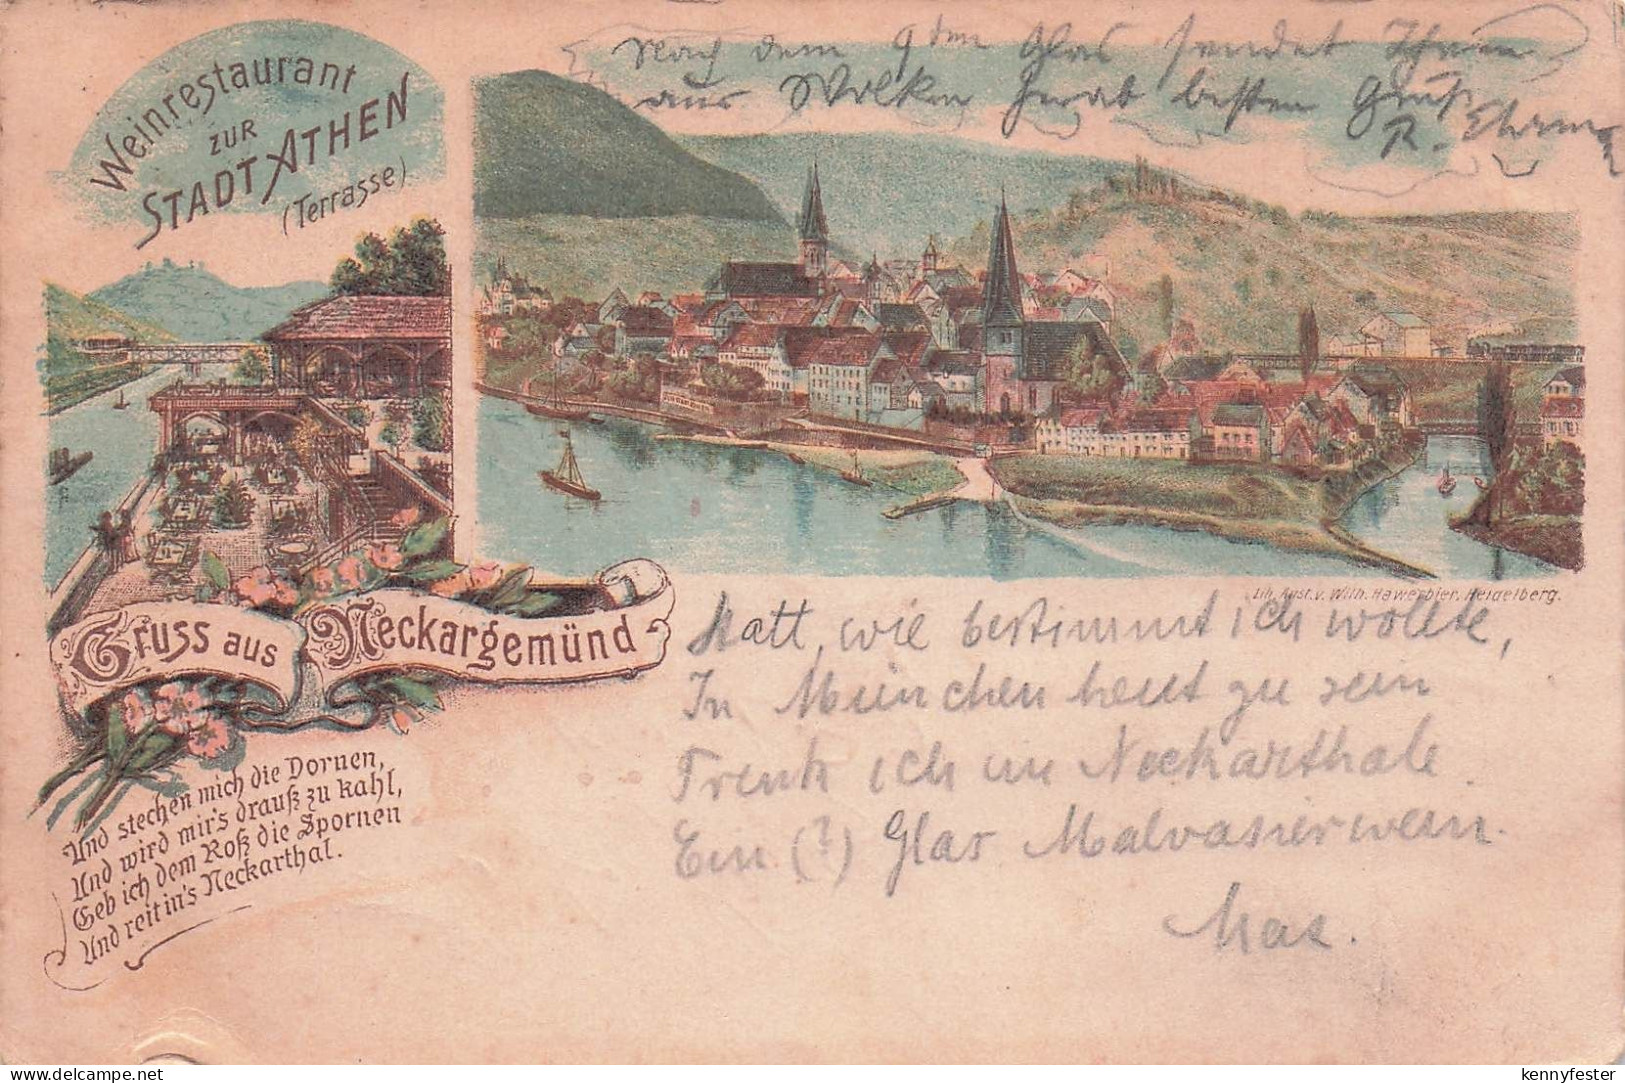 Nach dem 9ten Glas sendet Ihnen
aus Wolken herab besten Gruß
R.
Weinrestaurant
ZUR
STADT ATHEN
(Terrasse)
Lith. Anst. v. Wilh. Hawerbier, Heidelberg.
Gruss aus Neckargemünd
Statt, wie bestimmt ich wollte,
In München heut zu sein
Trink ich im Neckarthale
Ein (?) Glas Malvasierwein.
Max.
Und stechen mich die Dornen,
Und wird mir's drauß zu kahl,
Geb ich dem Roß die Spornen
Und reit in's Neckarthal.
kennyfester